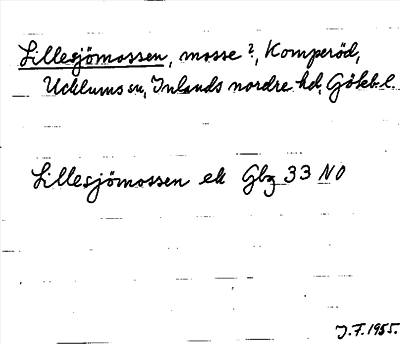 Lillesjömossen, mosse ?, Komperöd,
Ucklums sn, Inlands nordre hd, Göteb. l.
Lillesjömossen ek Gbg 33 NO
J.F. 1955.